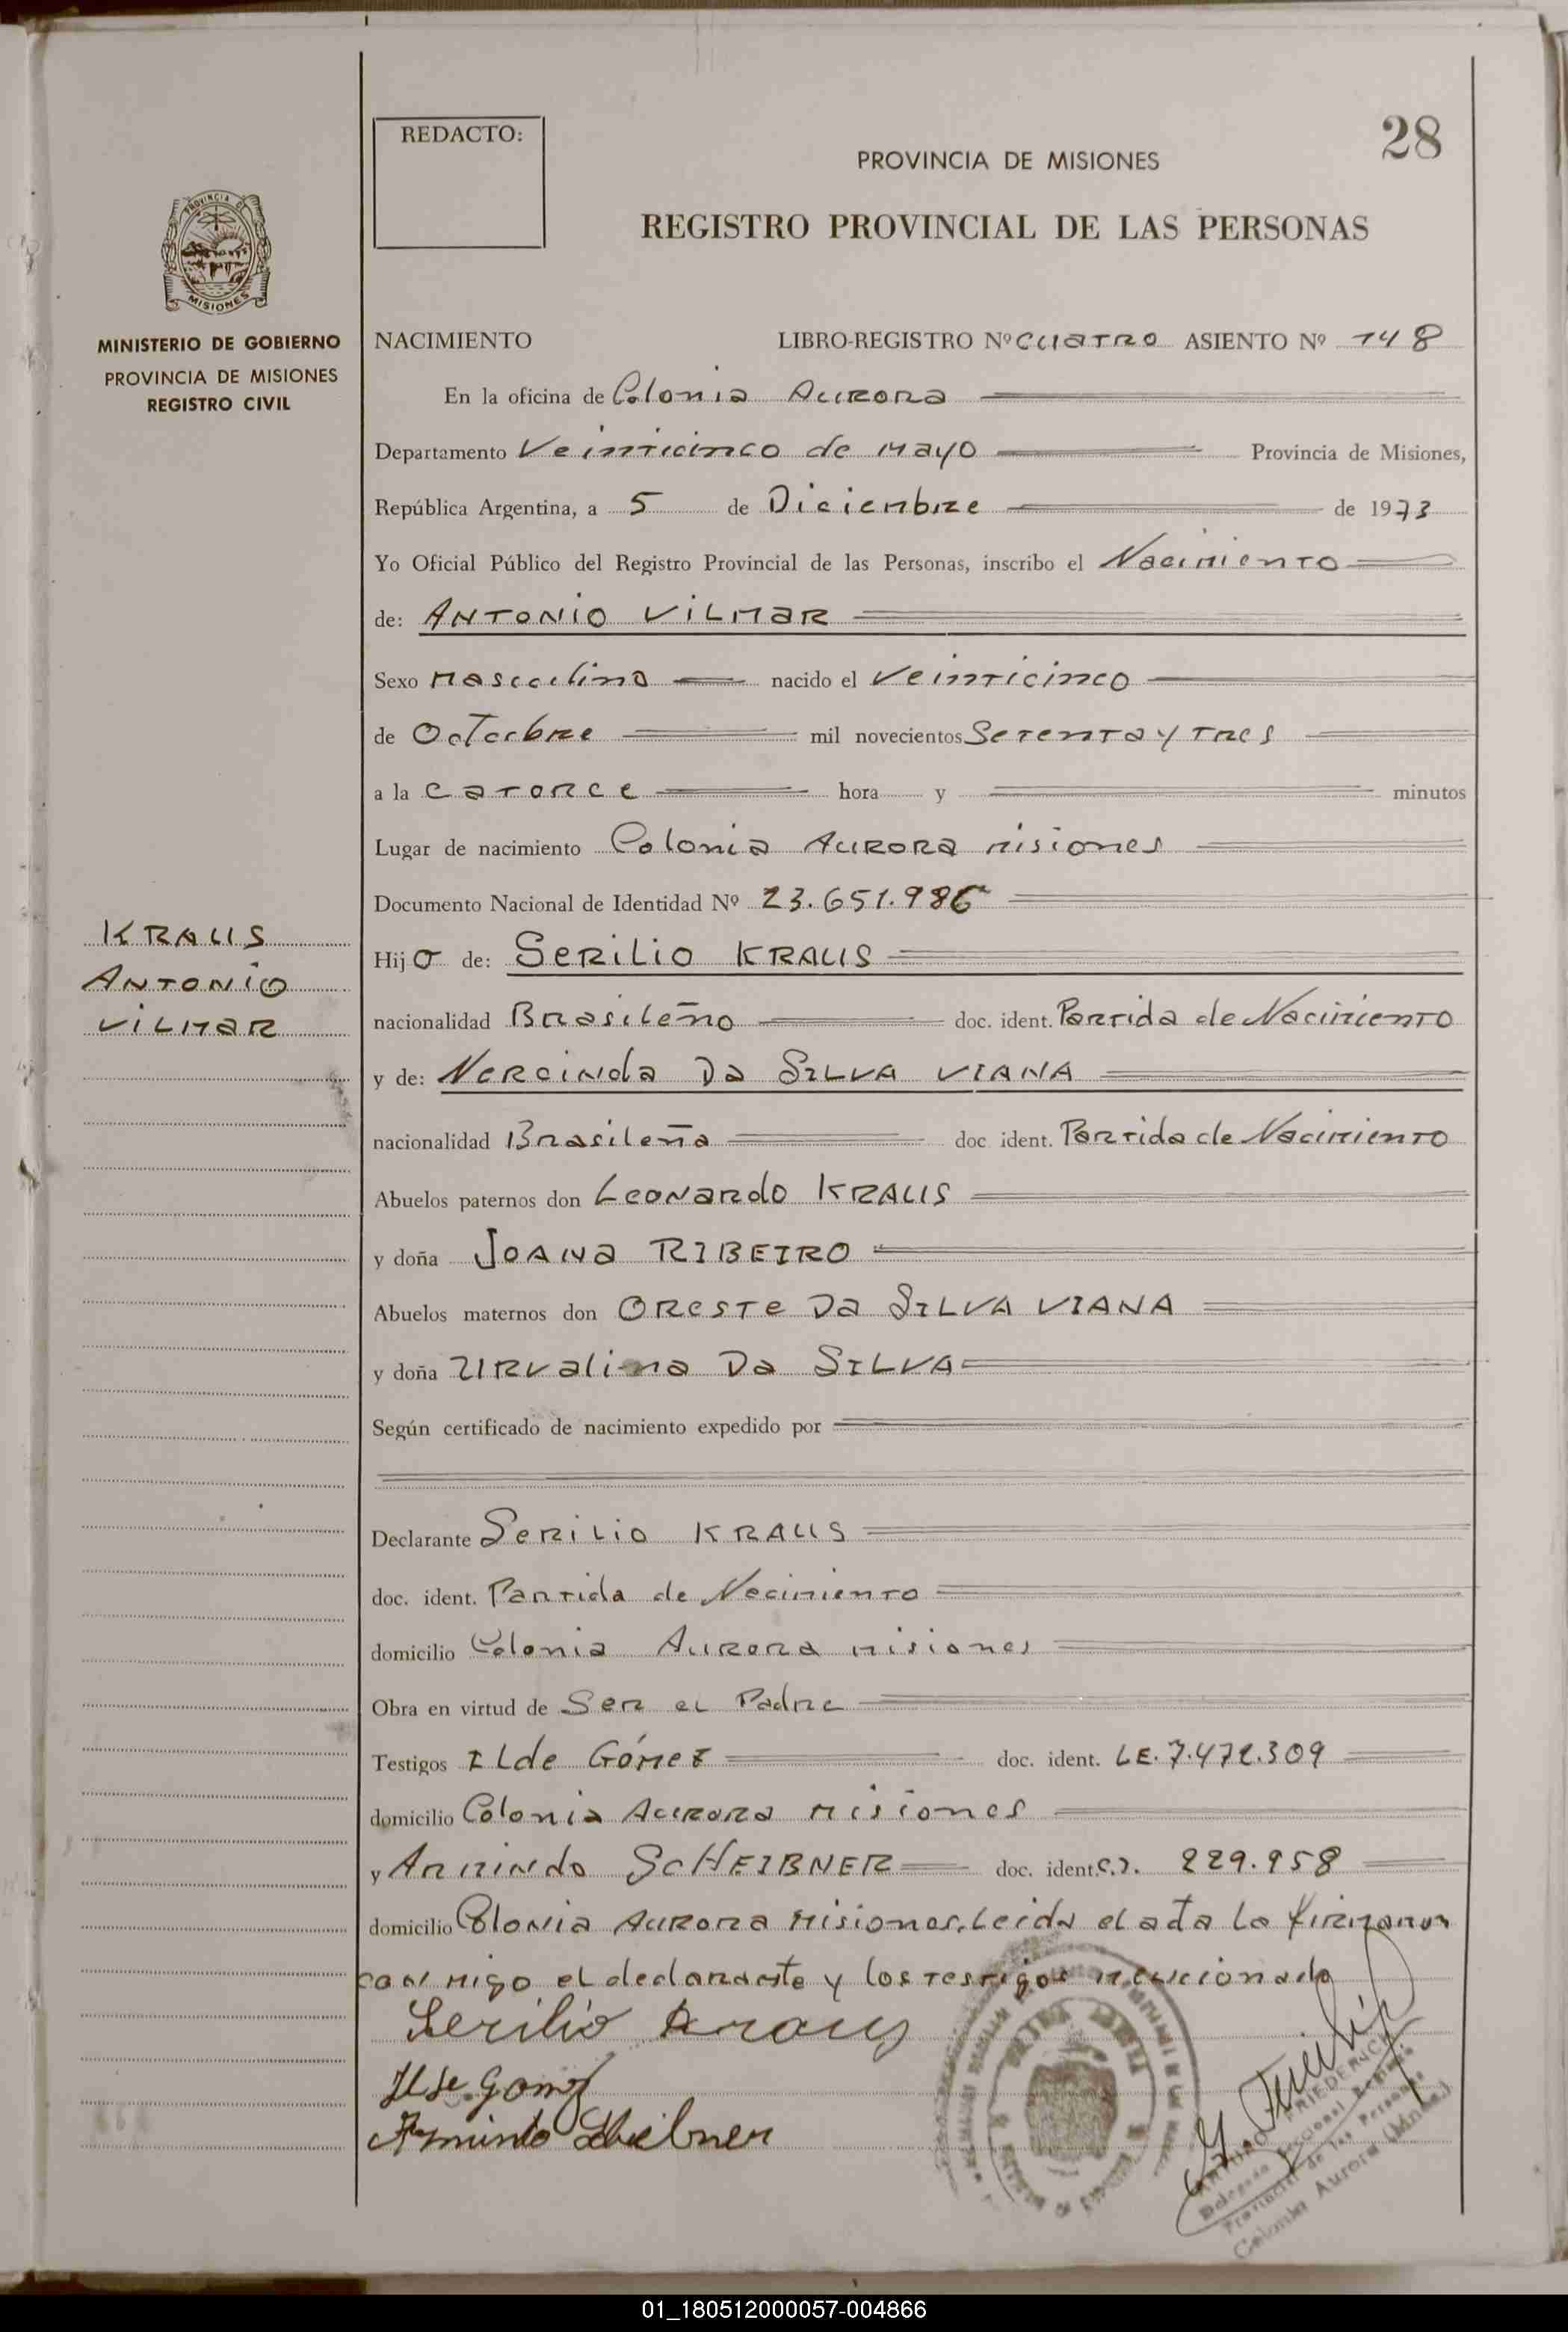 28
REDACTO:
PROVINCIA DE MISIONES
REGISTRO PROVINCIAL DE LAS PERSONAS
PROVINCIA DE
MISIONES
MINISTERIO DE GOBIERNO
PROVINCIA DE MISIONES
REGISTRO CIVIL
NACIMIENTO LIBRO-REGISTRO Nº CUATRO ASIENTO Nº 148
En la oficina de Colonia Aurora
Departamento Veinticinco de Mayo Provincia de Misiones,
República Argentina, a 5 de Diciembre de 1973
Yo Oficial Público del Registro Provincial de las Personas, inscribo el Nacimiento
de: ANTONIO VILMAR
Sexo masculino nacido el veinticinco
de Octubre mil novecientos Setenta y tres
a la catorce hora y minutos
Lugar de nacimiento Colonia Aurora misiones
Documento Nacional de Identidad Nº 23.651.986
KRAUS
ANTONIO
VILMAR
Hijo de: SERILIO KRAUS
nacionalidad Brasileño doc. ident. Partida de Nacimiento
y de: Nercinda Da SILVA VIANA
nacionalidad Brasileña doc ident. Partida de Nacimiento
Abuelos paternos don Leonardo KRAUS
y doña JOANA RIBEIRO
Abuelos maternos don ORESTE Da SILVA VIANA
y doña URvalina Da SILVA
Según certificado de nacimiento expedido por
Declarante SERILIO KRAUS
doc. ident. Partida de Nacimiento
domicilio Colonia Aurora misiones
Obra en virtud de Ser el Padre
Testigos ILde Gómez doc. ident. LE. 7.472.309
domicilio Colonia Aurora misiones
y Armindo SCHEIBNER doc. ident. C.I. 229.958
domicilio Colonia Aurora Misiones. Leida el acta la firmaron
con migo el declarante y los testigos mencionado
Serilio Kraus
Ilde Gomez
Armindo Scheibner
ARTURO FRIEDERICH
Delegado Seccional Registro
Provincial de las Personas
Colonia Aurora (Mnes.)
01_180512000057-004866